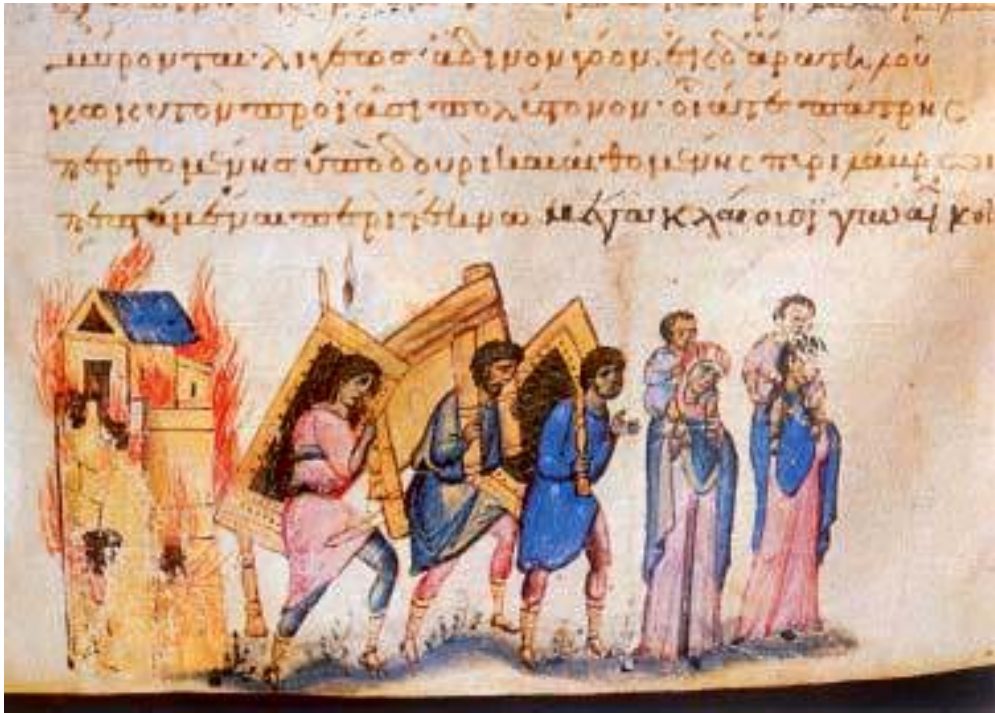 μύρονται· λιγέως ἀδινὸν γόον. ἐκ δ' ἄρα τηλοῦ
κωκυτὸν προϊᾶσι πολύτονον· οἷά τε πάτρης
περθομένης ὑπὸ δουρὶ καὶ αἰθομένης περὶ
πεπταμέναι περὶ τέκνα μέγα κλάουσι γυναῖκες